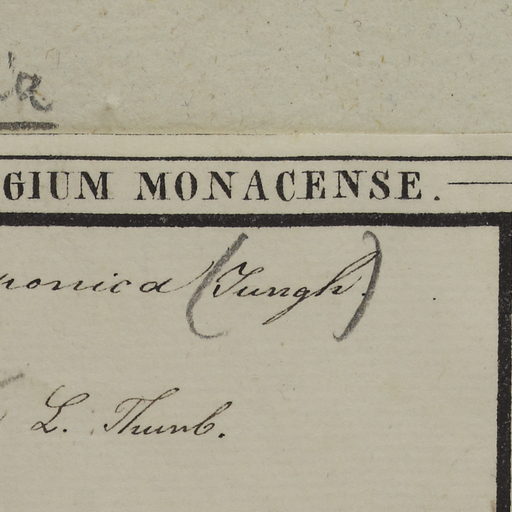 GIUM MONACENSE.
ponica (Jungh.)
L. Thunb.